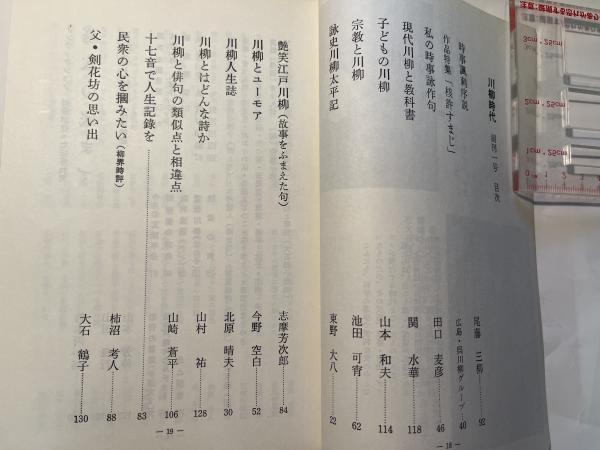 川柳時代 創刊一号 目次
時事諷刺序説 尾藤 三柳 92
作品特集「核許すまじ」 広島・呉川柳グループ 40
私の時事詠作句 田口 麦彦 46
現代川柳と教科書 関 水華 118
子どもの川柳 山本 和夫 114
宗教と川柳 池田 可宵 62
詠史川柳太平記 東野 大八 22
— 18 —
艶笑江戸川柳(故事をふまえた句) 志摩芳次郎 84
川柳とユーモア 今野 空白 52
川柳人生誌 北原 晴夫 30
川柳とはどんな詩か 山村 祐 128
川柳と俳句の類似点と相違点 山崎 蒼平 106
十七音で人生記録を 83
民衆の心を摑みたい(柳界時評) 柿沼 考人 88
父・剣花坊の思い出 大石 鶴子 130
— 19 —
3cm 25cm
2cm 25cm
1cm 25cm